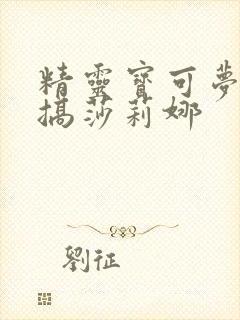 精靈寶可夢
搞莎莉娜
劉征